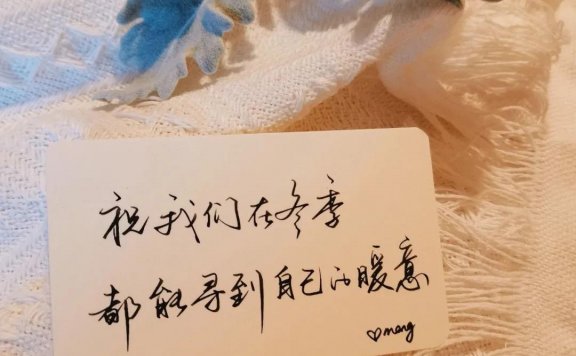 祝我们在冬季
都能寻到自己的暖意
♡meng